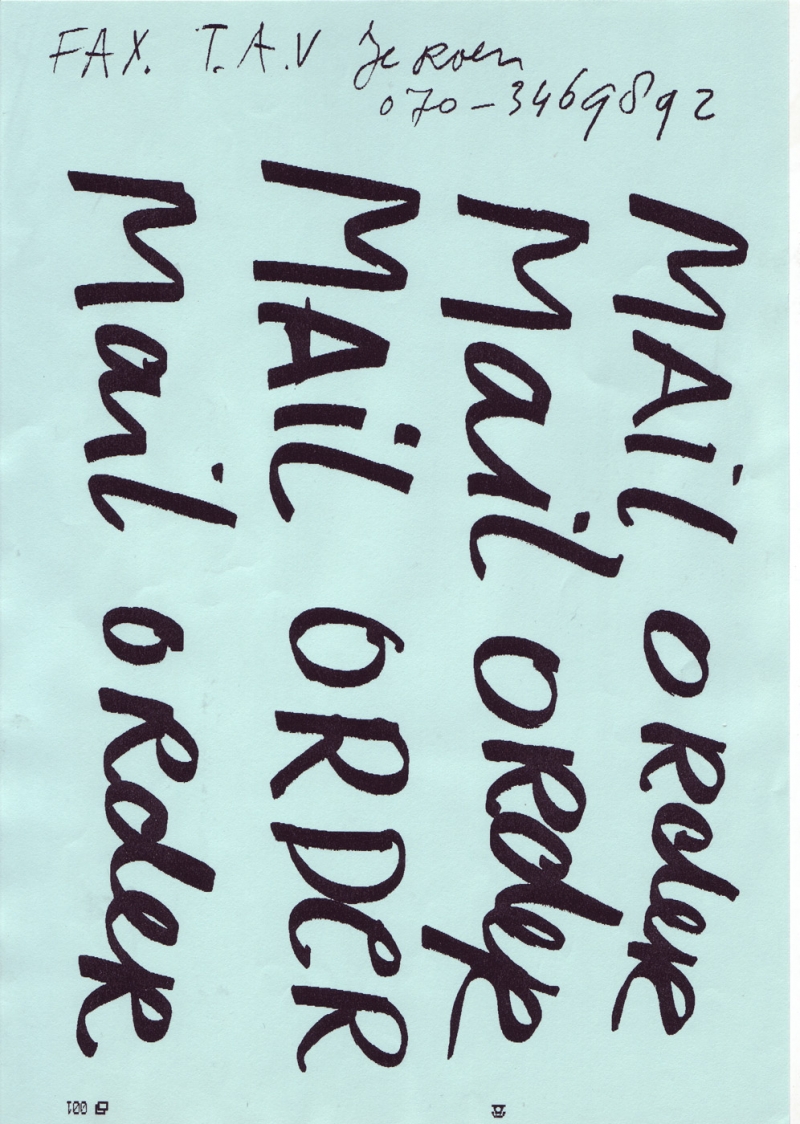 FAX. T.A.V Jeroen
070-3469892
MAil oRdeR
Mail oRdeR
MAil ORDeR
Mail oRdeR
001